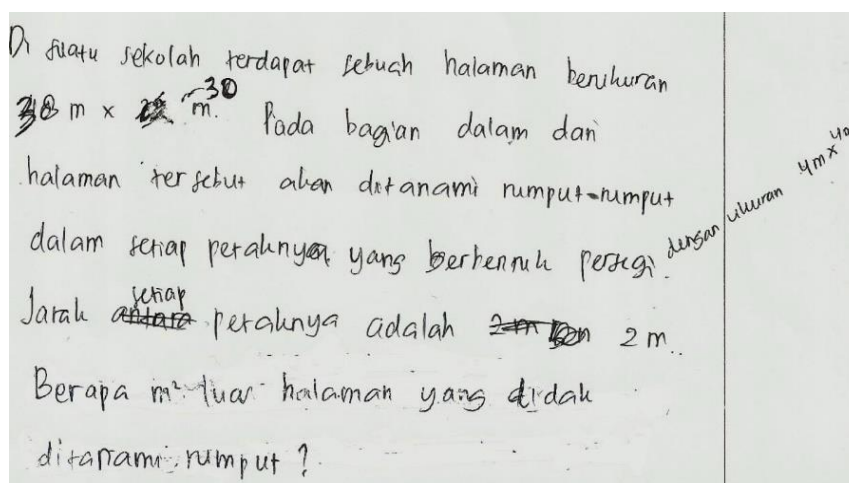 Di suatu sekolah terdapat sebuah halaman berukuran
38 m x 30 m. Pada bagian dalam dari
halaman tersebut akan ditanami rumput-rumput
dalam setiap petaknya yang berbentuk persegi dengan ukuran 4m x 4m
Jarak setiap petaknya adalah 2 m.
Berapa m² luas halaman yang tidak
ditanami rumput?